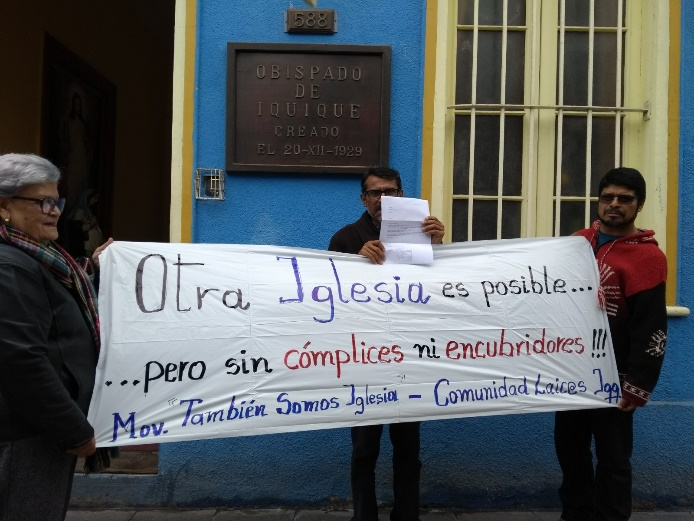 588
OBISPADO
DE
IQUIQUE
CREADO
EL 20-XII-1929
Otra Iglesia es posible...
...pero sin cómplices ni encubridores!!!
Mov. "También Somos Iglesia" - Comunidad Laices Iqq.